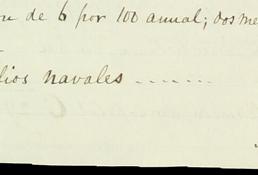 de 6 por 100 anual; dos me
lios navales